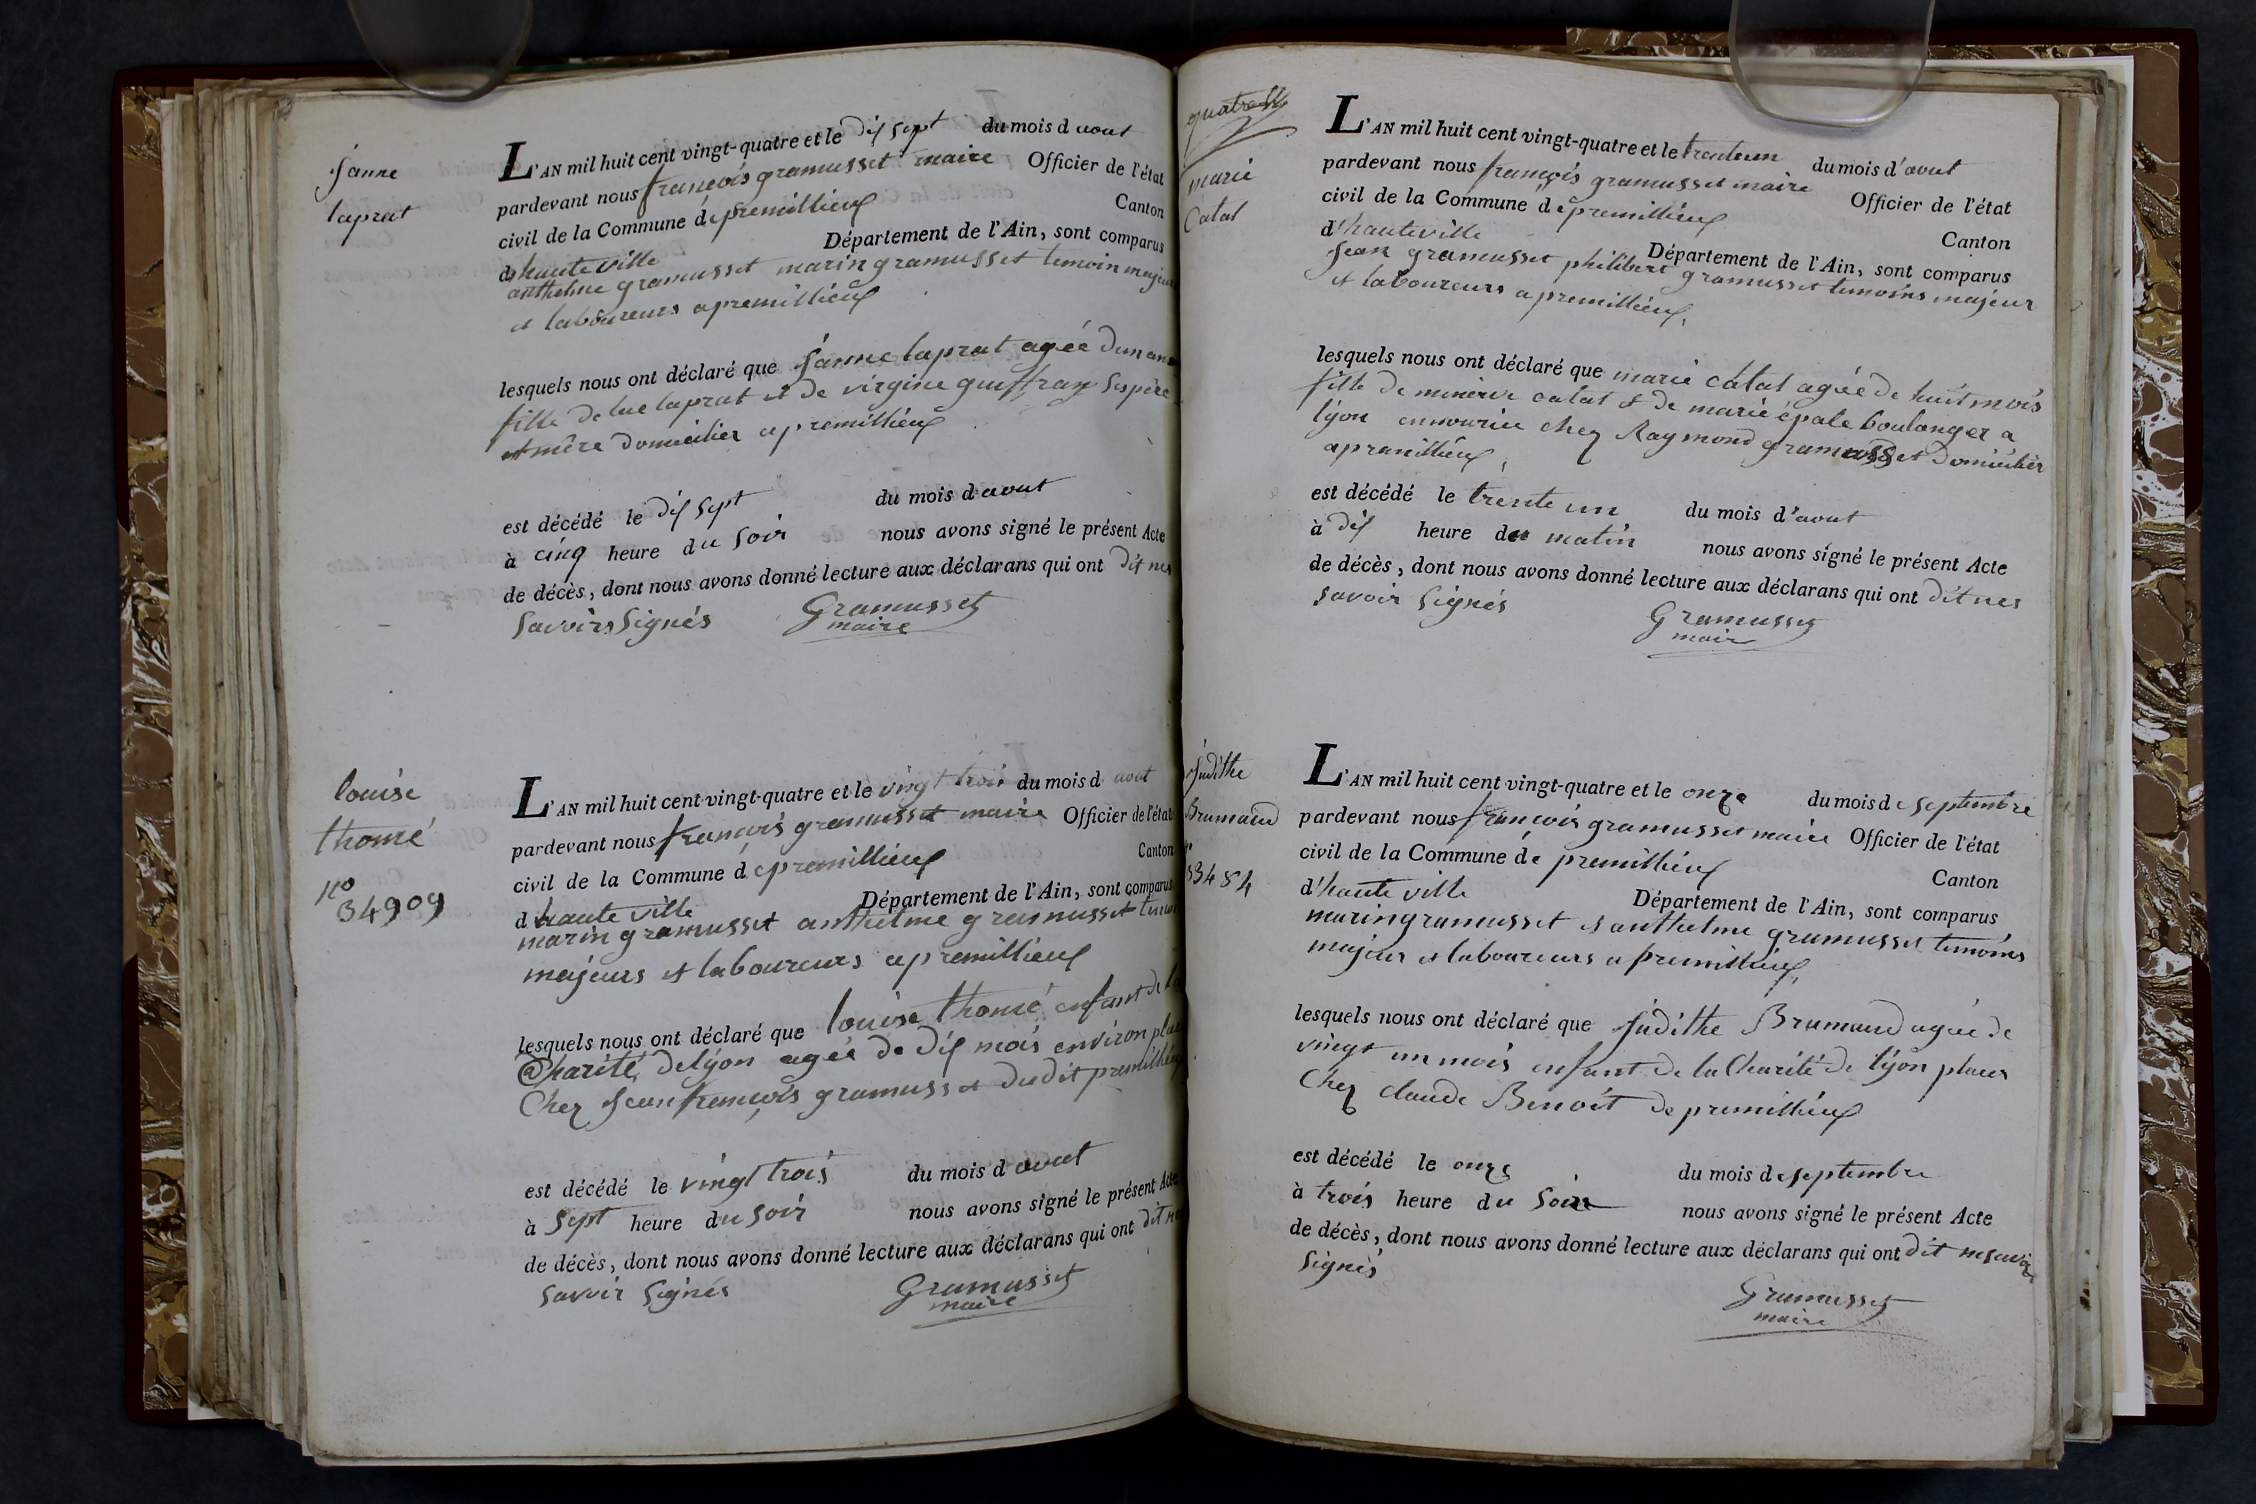 janne
laprat
L'AN mil huit cent vingt-quatre et le dix sept du mois d aout
pardevant nous françois gramusset maire Officier de l'état
civil de la Commune de premillieux Canton
d hauteville Département de l'Ain, sont comparus
anthelme gramusset marin gramusset temoin majeur
et laboureurs a premillieux
lesquels nous ont déclaré que janne laprat agée dun an
fille de luc laprat et de virgine guiffray ses père
et mère domicilier a premillieux
est décédé le dix sept du mois d aout
à cinq heure du soir nous avons signé le présent Acte
de décès, dont nous avons donné lecture aux déclarans qui ont dit nes
savoirs signés Gramusset
maire
louise
thomé
no
34909
L'AN mil huit cent vingt-quatre et le vingt trois du mois d aout
pardevant nous françois gramusset maire Officier de l'état
civil de la Commune de premillieux Canton
d haute ville Département de l'Ain, sont comparus
marin gramusset anthelme gramusset
majeurs et laboureurs a premillieux
lesquels nous ont déclaré que louise thomé enfant de la
Charité de lÿon agée de dix mois environ
Chez jean françois gramusset dudit premillieux
est décédé le vingt trois du mois d aout
à sept heure du soir nous avons signé le présent Acte
de décès, dont nous avons donné lecture aux déclarans qui ont dit
savoir signés Gramusset
maire
marie
Catal
L'AN mil huit cent vingt-quatre et le trenteun du mois d'aout
pardevant nous françois gramusset maire Officier de l'état
civil de la Commune de premillieux Canton
d'hauteville Département de l'Ain, sont comparus
jean gramusset philibert gramusset temoins majeur
et laboureurs a premillieux
lesquels nous ont déclaré que marie catal agée de huit mois
fille de minerve catal et de marie épale boulanger a
lÿon ennourice chez Raymond gramusset domicilier
a premillieux
est décédé le trente un du mois d'aout
à dix heure du matin nous avons signé le présent Acte
de décès, dont nous avons donné lecture aux déclarans qui ont dit nes
savoir signés Gramusset
maire
judithe
Brumand
L'AN mil huit cent vingt-quatre et le onze du mois de septembre
pardevant nous françois gramusset maire Officier de l'état
civil de la Commune de premillieux Canton
d'haute ville Département de l'Ain, sont comparus
marin gramusset et anthelme gramusset temoins
majeur et laboureurs a premillieux
lesquels nous ont déclaré que judithe Brumand agée de
vingt un mois enfant de la Charité de lÿon places
Chez claude Benoit de premillieux
est décédé le onze du mois de septembre
à trois heure du soir nous avons signé le présent Acte
de décès, dont nous avons donné lecture aux déclarans qui ont dit nesavoir
signés
Gramusset
maire